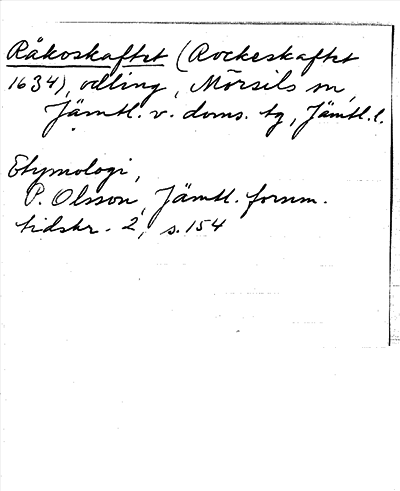 Råkoskaftet (Rockeskaftet
1634), odling, Mörsils sn,
Jämtl. v. doms. tg, Jämtl. l.
Etymologi,
P. Olsson, Jämtl. fornm.
tidskr. 2, s. 154